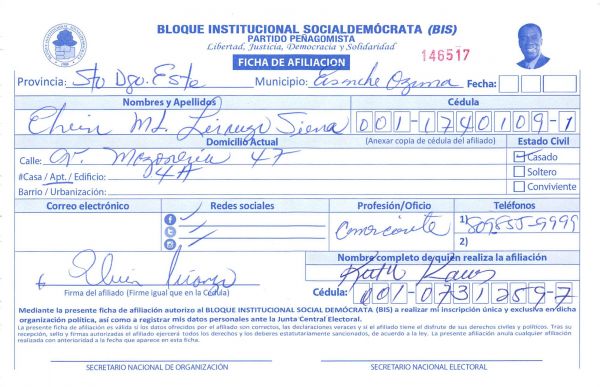 BLOQUE INSTITUCIONAL SOCIALDEMÓCRATA (BIS)
PARTIDO PEÑAGOMISTA
Libertad, Justicia, Democracia y Solidaridad
FICHA DE AFILIACION
146517
Provincia: Sto Dgo. Este Municipio: Ozama Fecha:
Nombres y Apellidos Cédula
001-1740109-1
Domicilio Actual (Anexar copia de cédula del afiliado) Estado Civil
Calle: 47 Casado
#Casa / Apt. / Edificio: 4A Soltero
Barrio / Urbanización: Conviviente
Correo electrónico Redes sociales Profesión/Oficio Teléfonos
Comerciante 1) 809855-9999
2)
Nombre completo de quien realiza la afiliación
Firma del afiliado (Firme igual que en la Cédula) Cédula: 001-0731259-7
Mediante la presente ficha de afiliación autorizo al BLOQUE INSTITUCIONAL SOCIAL DEMÓCRATA (BIS) a realizar mi inscripción única y exclusiva en dicha
organización política, así como a registrar mis datos personales ante la Junta Central Electoral.
La presente ficha de afiliación es válida si los datos ofrecidos por el afiliado son correctos, las declaraciones veraces y si el afiliado tiene el disfrute de sus derechos civiles y políticos. Tras su
recepción, sello y firmas autorizadas el afiliado ejercerá todos los derechos y los deberes estatutariamente sancionados, de acuerdo a la ley. La presente afiliación anula cualquier afiliación
realizada con anterioridad a la fecha que aparece en esta ficha.
SECRETARIO NACIONAL DE ORGANIZACIÓN SECRETARIO NACIONAL ELECTORAL